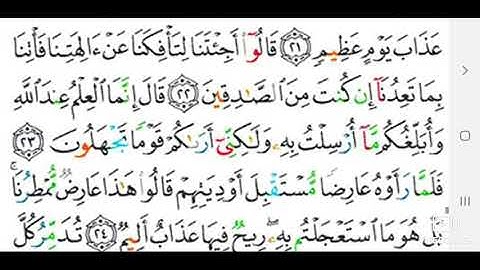 عَذَابَ يَوْمٍ عَظِيمٍ ٢١ قَالُوٓا۟ أَجِئْتَنَا لِتَأْفِكَنَا عَنْ ءَالِهَتِنَا فَأْتِنَا
بِمَا تَعِدُنَآ إِن كُنتَ مِنَ ٱلصَّـٰدِقِينَ ٢٢ قَالَ إِنَّمَا ٱلْعِلْمُ عِندَ ٱللَّهِ
وَأُبَلِّغُكُم مَّآ أُرْسِلْتُ بِهِۦ وَلَـٰكِنِّىٓ أَرَىٰكُمْ قَوْمًا تَجْهَلُونَ ٢٣
فَلَمَّا رَأَوْهُ عَارِضًا مُّسْتَقْبِلَ أَوْدِيَتِهِمْ قَالُوا۟ هَـٰذَا عَارِضٌ مُّمْطِرُنَا ۚ
بَلْ هُوَ مَا ٱسْتَعْجَلْتُم بِهِۦ ۖ رِيحٌ فِيهَا عَذَابٌ أَلِيمٌ ٢٤ تُدَمِّرُ كُلَّ